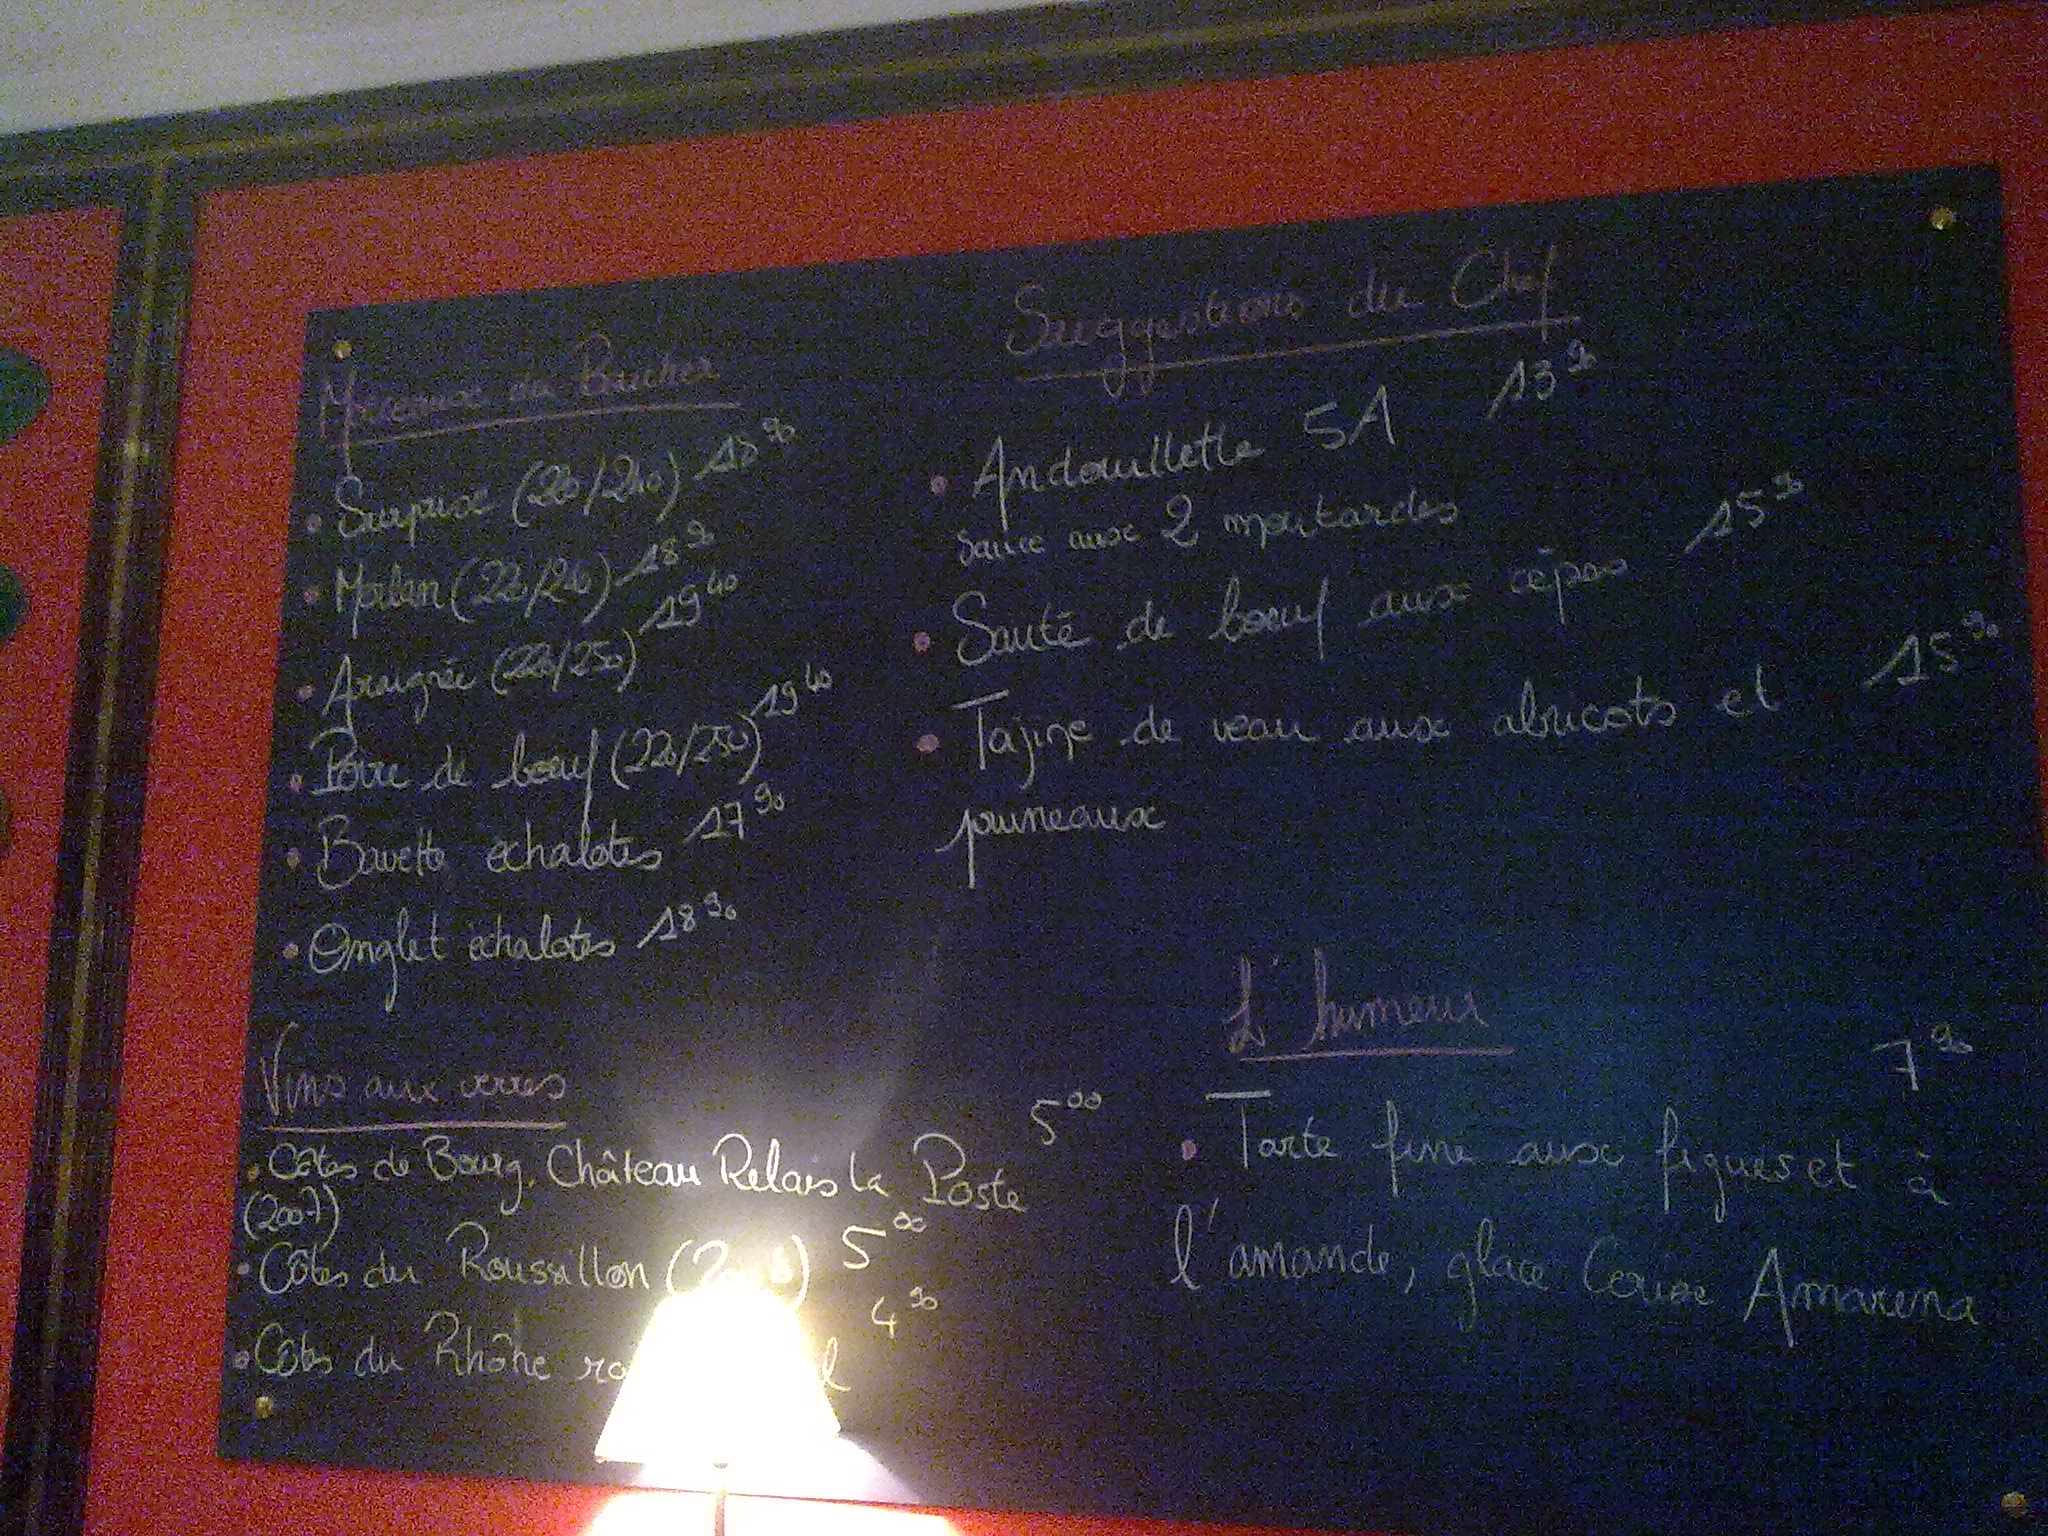 Morceaux du Boucher
• Surprise (220/240) 18 90
• Merlan (220/240) 18 90
• Araignée (220/250) 19 40
• Poire de boeuf (220/250) 19 40
• Bavette échalotes 17 90
• Onglet échalotes 18 90
Vins aux verres
• Côtes de Bourg. Château Relais La Poste 5 00
(2007)
• Côtes du Roussillon 5 00
• Côtes du Rhône 4 90
Suggestions du Chef
• Andouillette 5A 13 90
sauce aux 2 moutardes
• Sauté de boeuf aux cèpes 15 90
• Tajine de veau aux abricots et 15 90
pruneaux
L'humeur
• Tarte fine aux figues et à 7 90
l'amande, glace Cerise Amarena